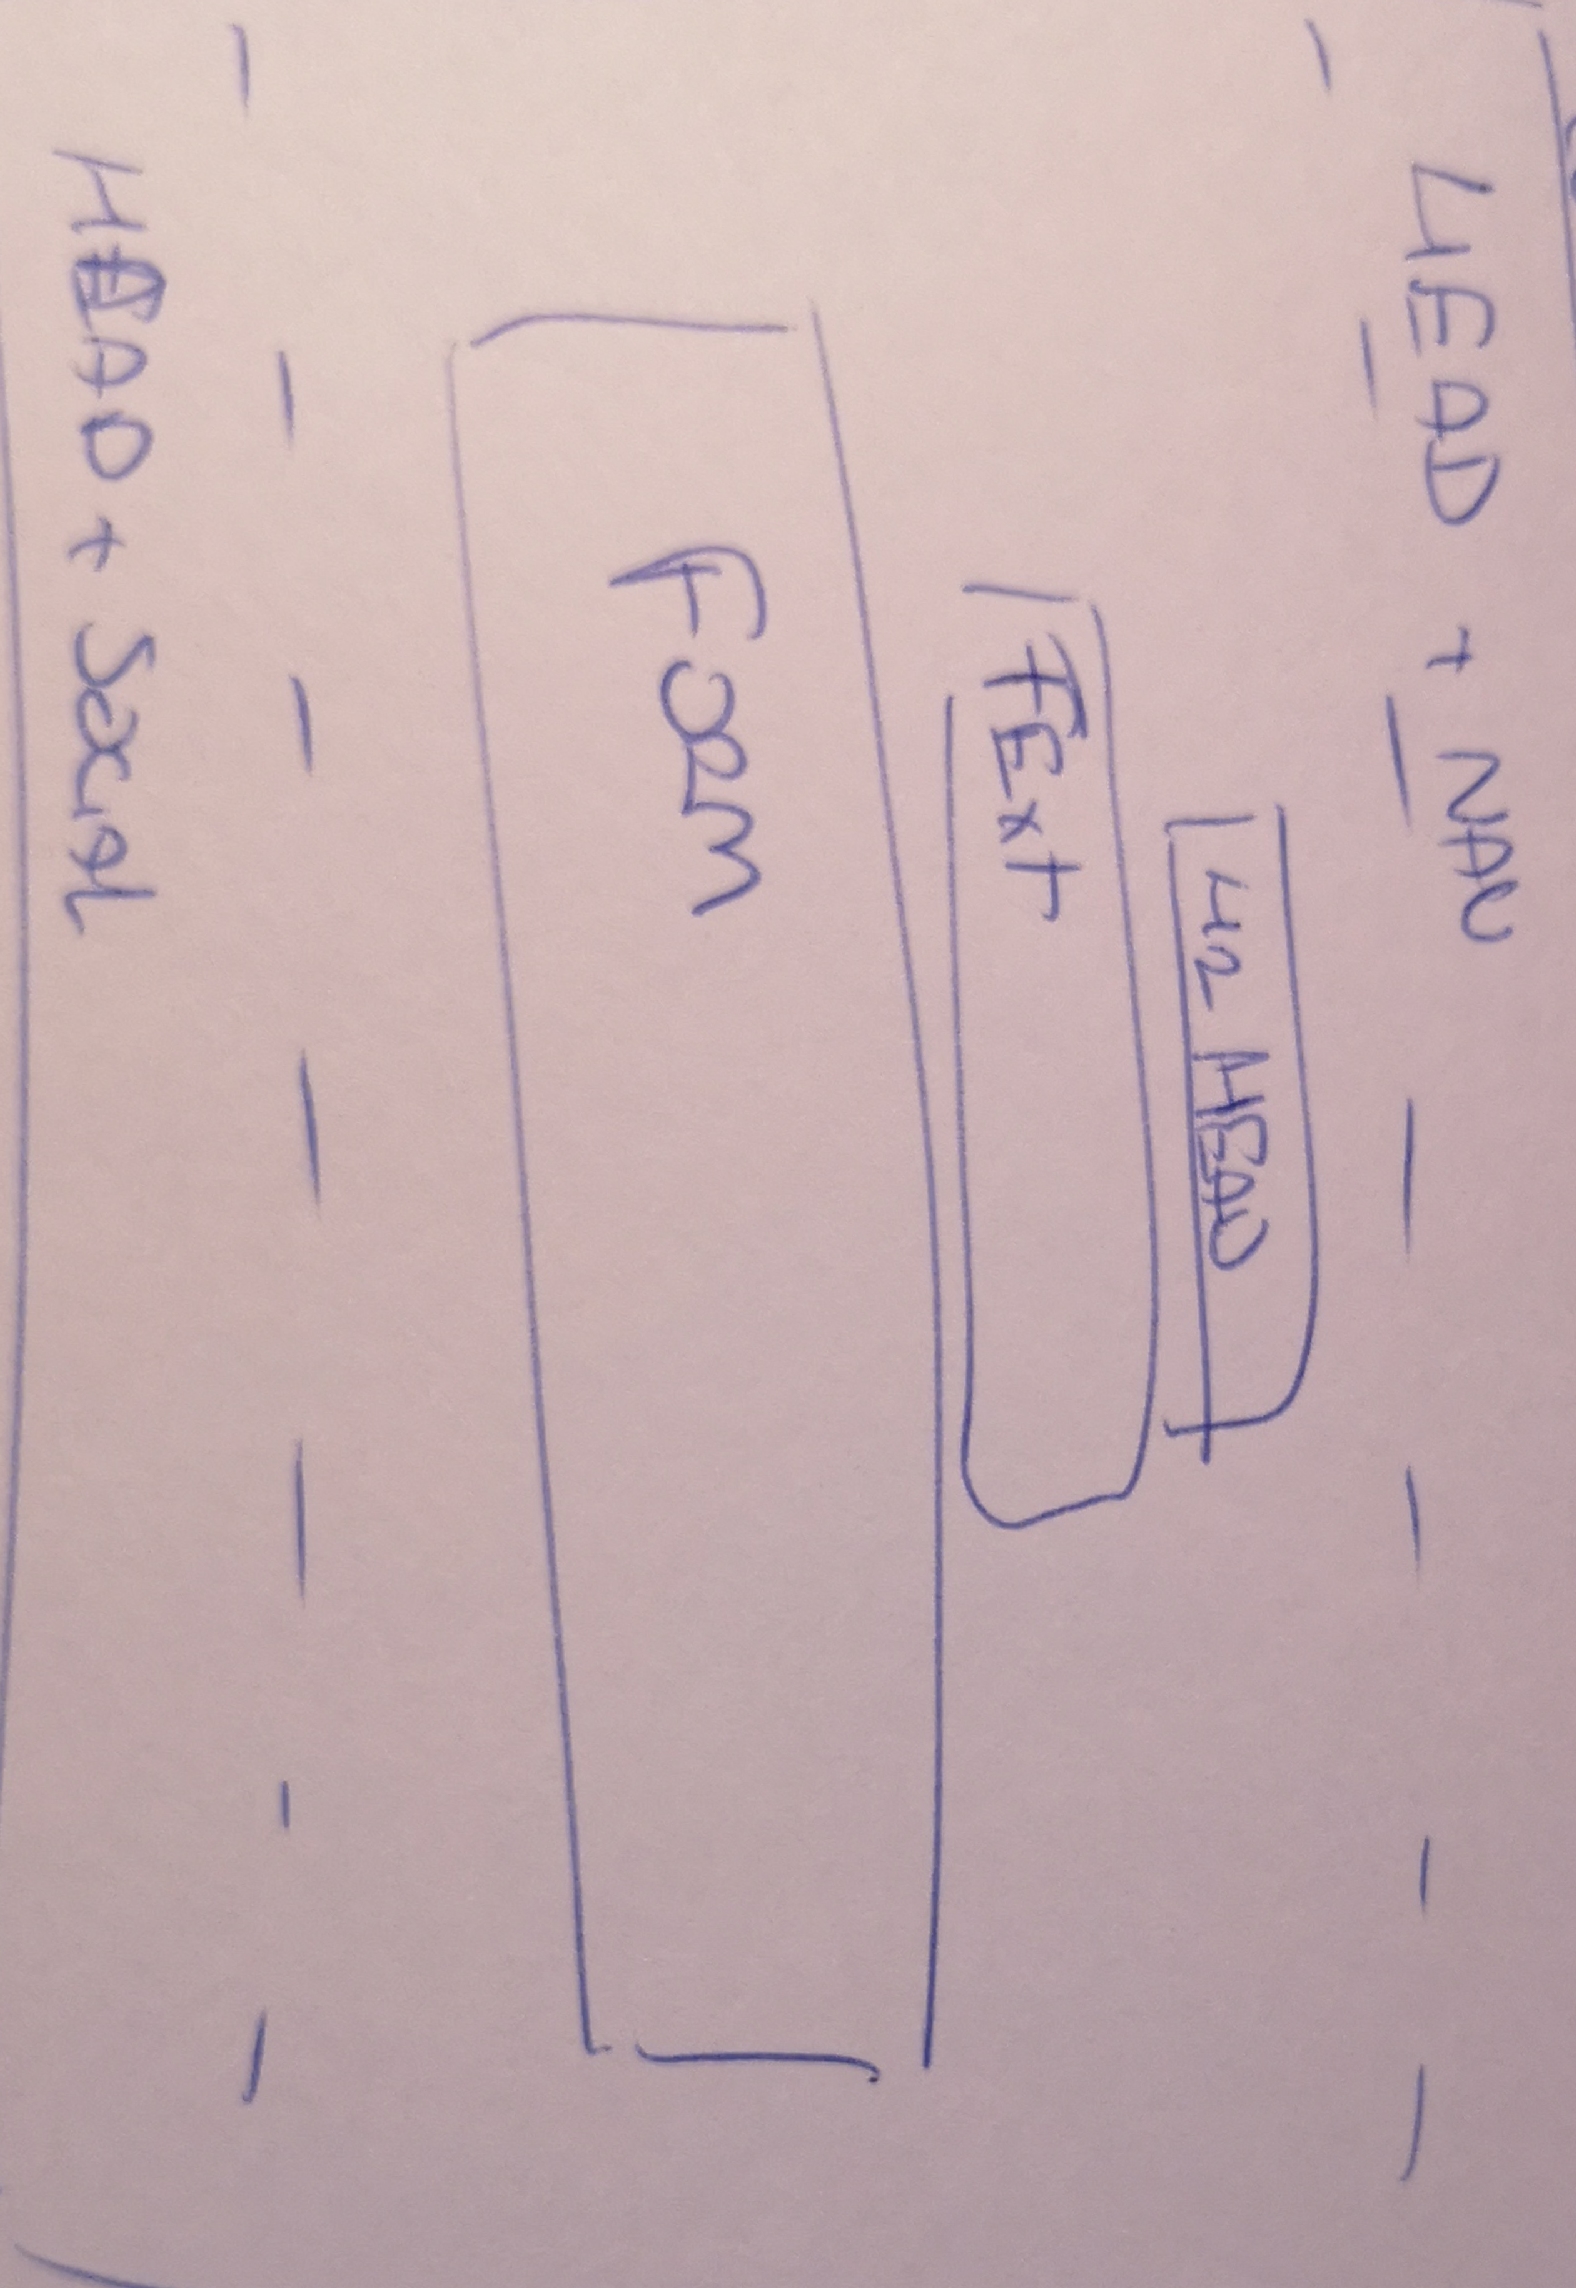 HEAD + NAV
H2 HEAD
TExt
FORM
HEAD + Social